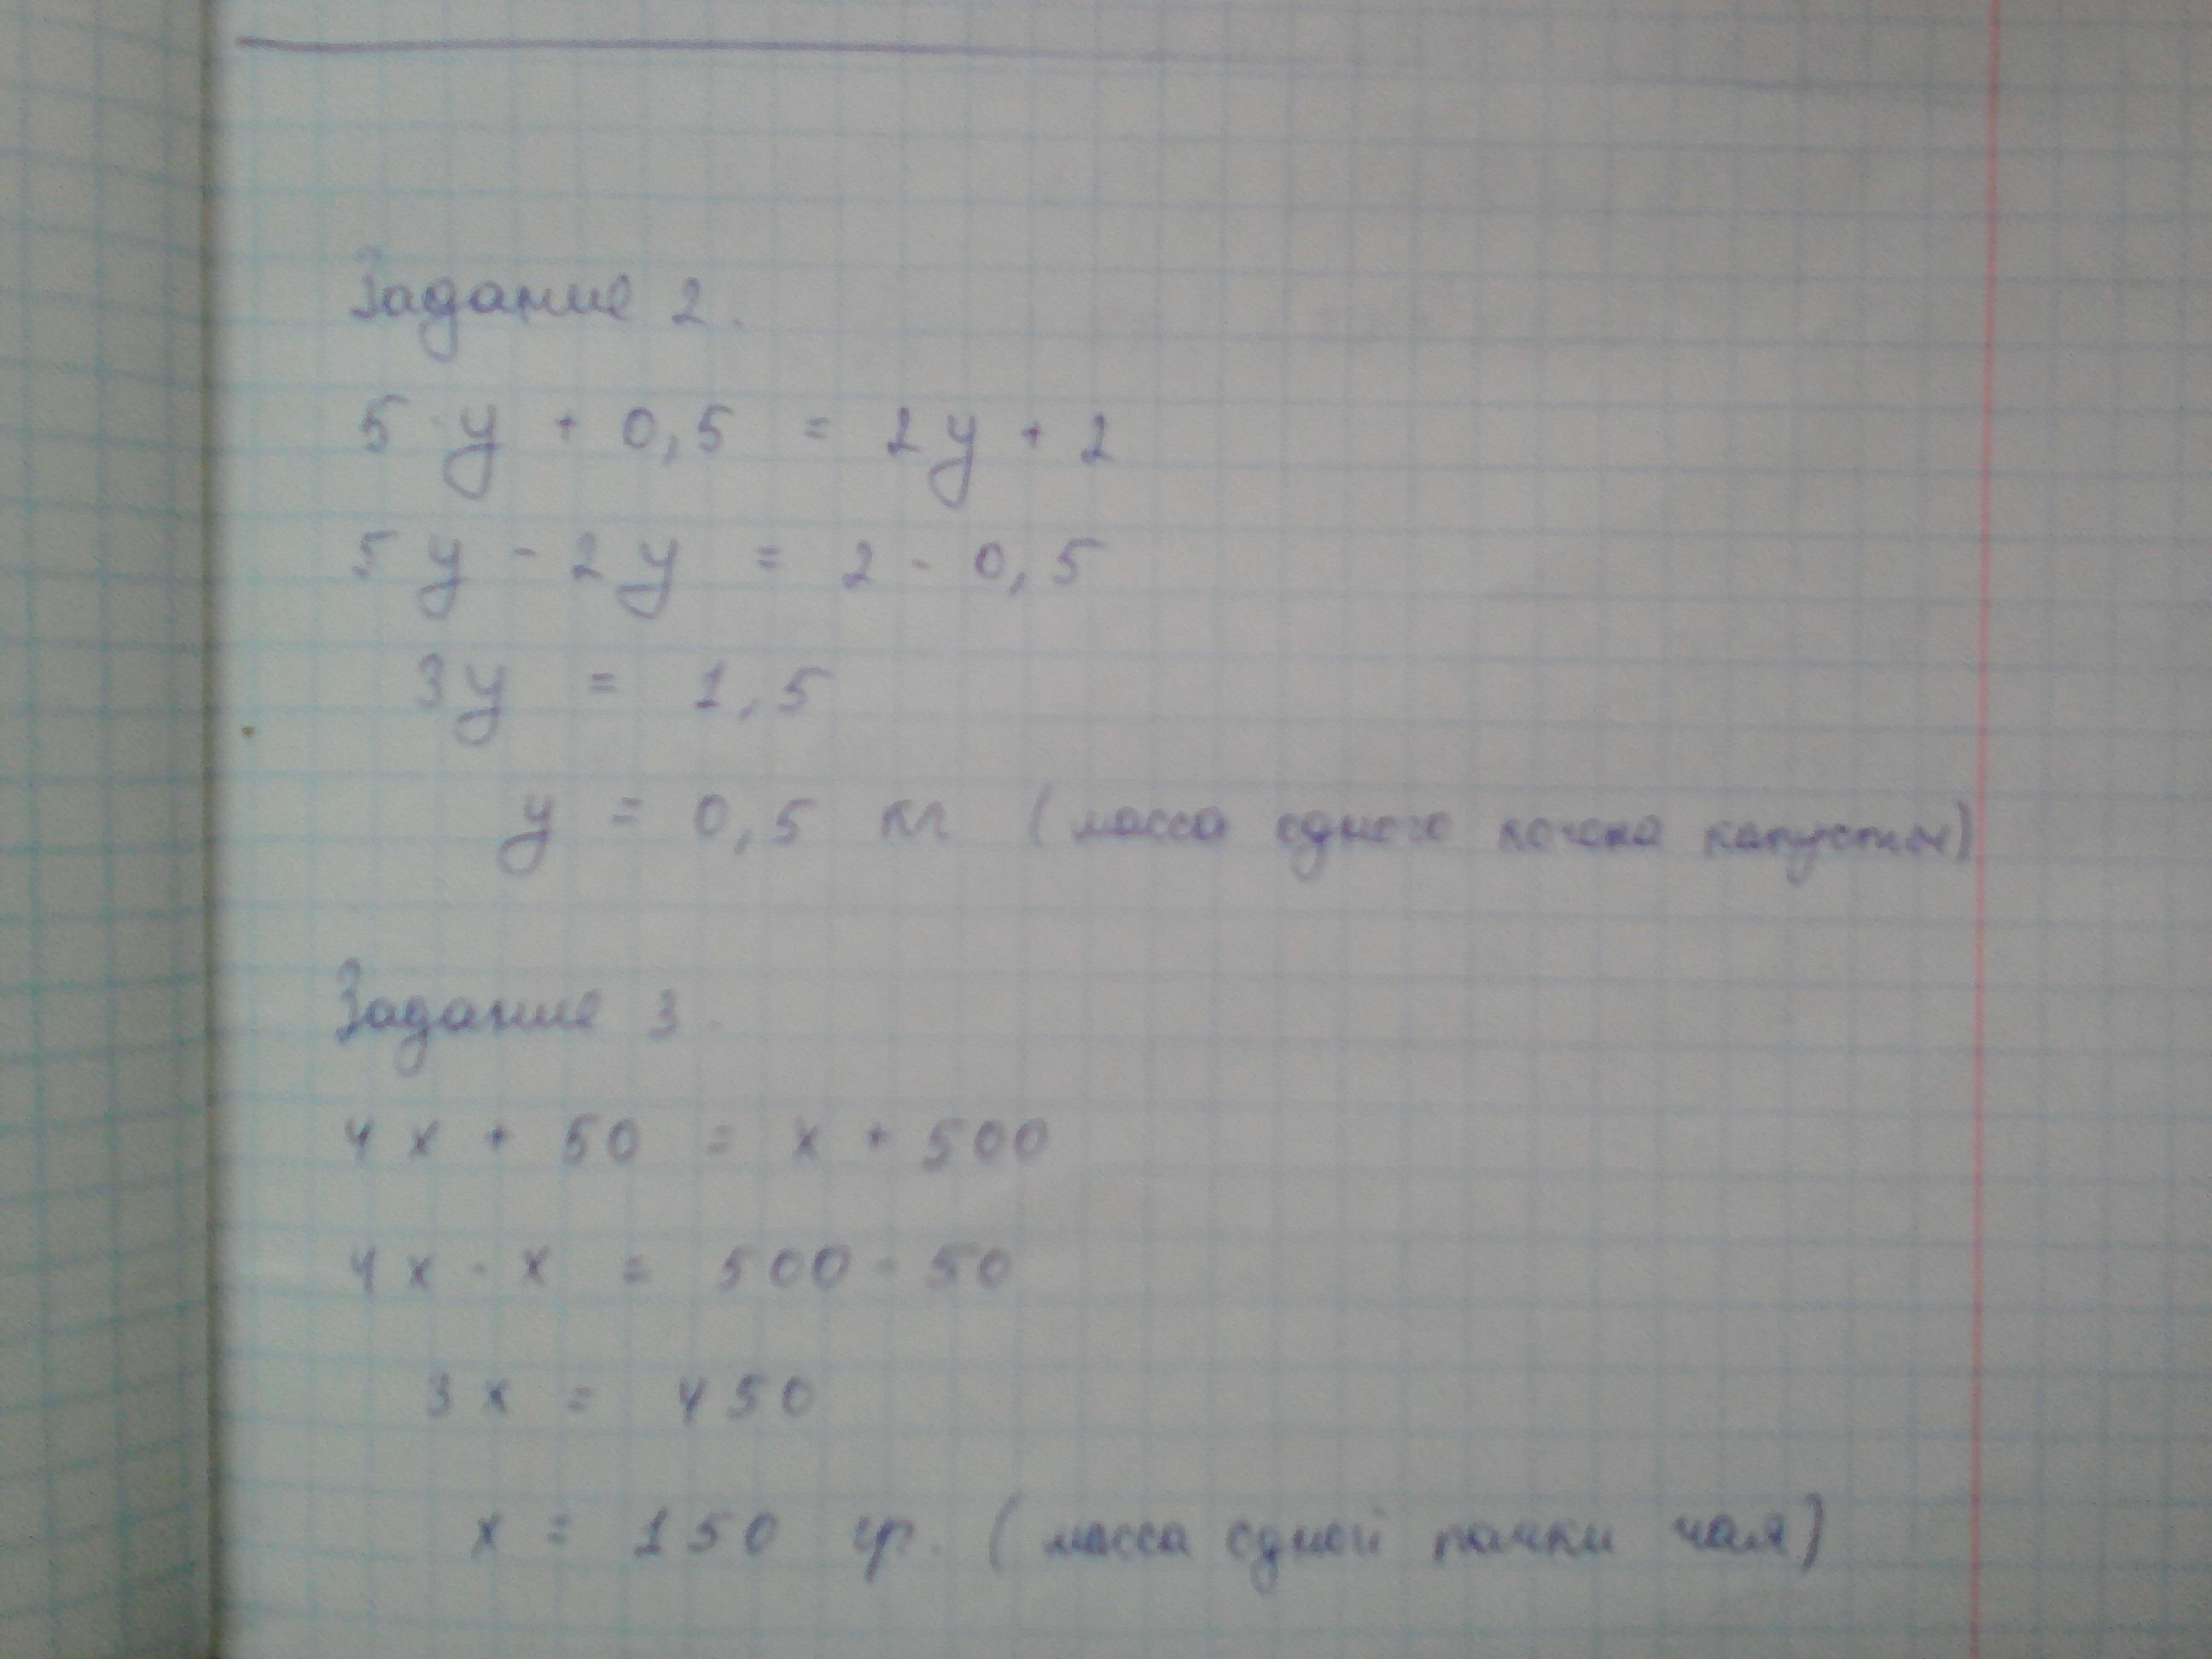 Задание 2.
5·y + 0,5 = 2y + 2
5y - 2y = 2 - 0,5
3y = 1,5
y = 0,5 кг (масса одного кочана капусты)
Задание 3.
4x + 50 = x + 500
4x - x = 500 - 50
3x = 450
x = 150 гр. (масса одной пачки чая)